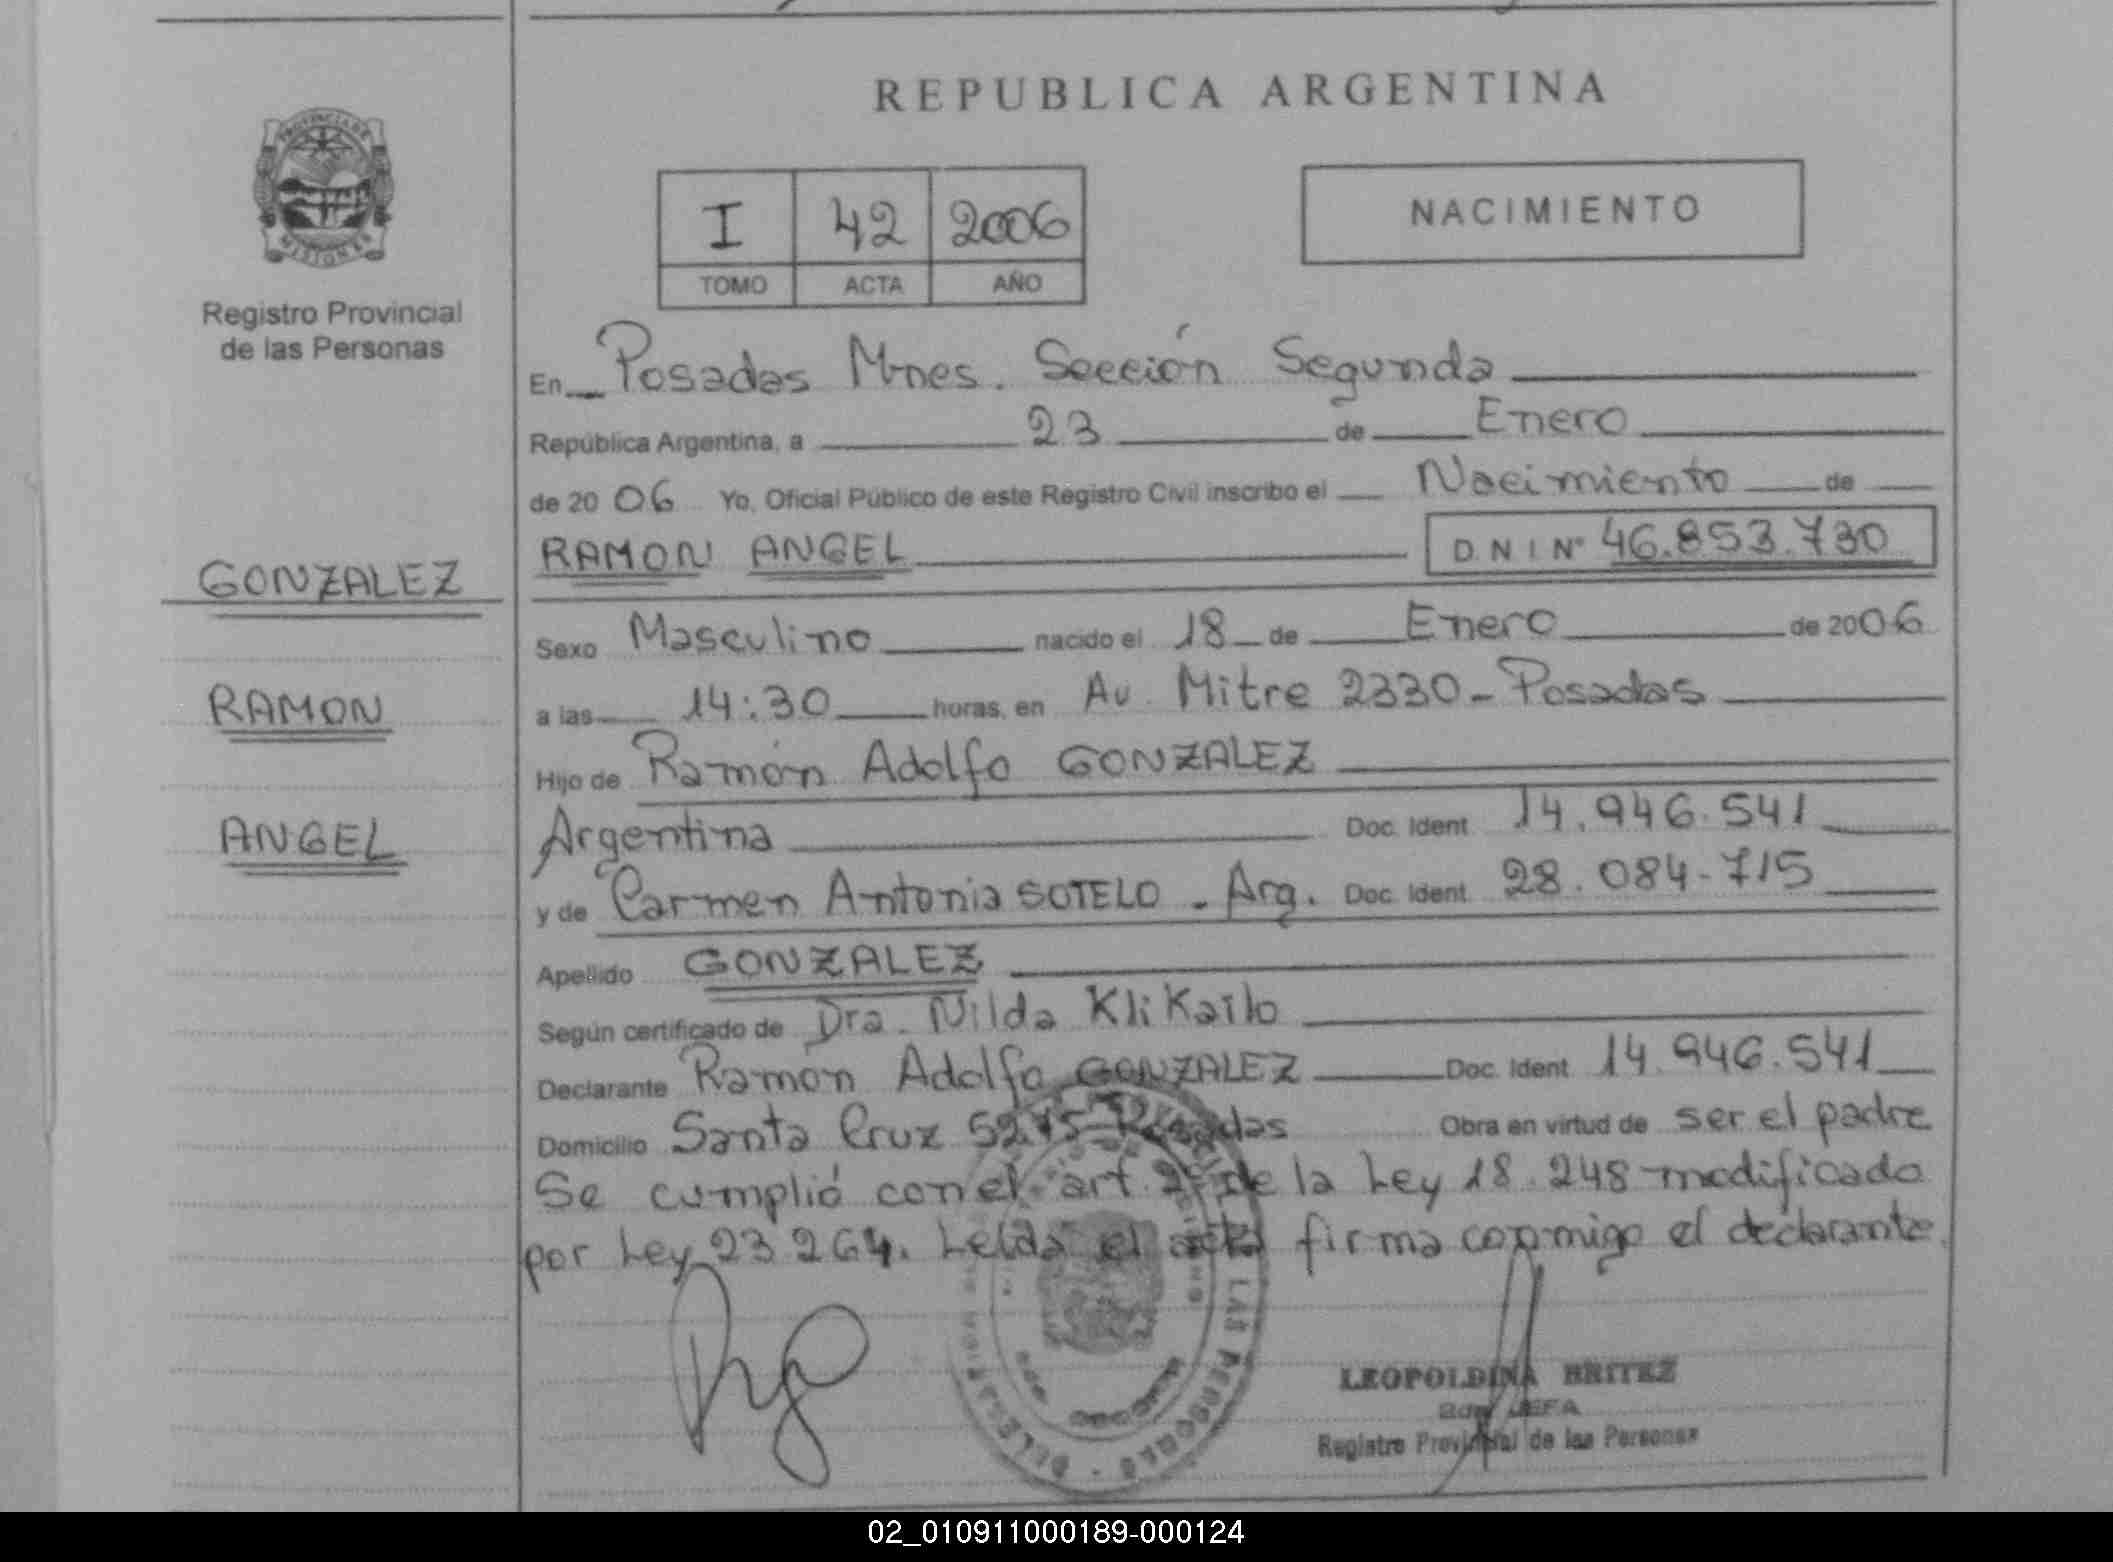 REPUBLICA ARGENTINA
PROVINCIA DE
MISIONES
Registro Provincial
de las Personas
I 42 2006
TOMO ACTA AÑO
NACIMIENTO
En Posadas Mnes. Sección Segunda
República Argentina, a 23 de Enero
de 2006 Yo, Oficial Público de este Registro Civil inscribo el Nacimiento de
RAMON ANGEL D.N.I Nº 46.853.730
GONZALEZ
RAMON
ANGEL
Sexo Masculino nacido el 18 de Enero de 2006
a las 14:30 horas, en Av. Mitre 2330 - Posadas
Hijo de Ramón Adolfo GONZALEZ
Argentina Doc. Ident 14.946.541
y de Carmen Antonia SOTELO - Arg. Doc. Ident. 28.084.715
Apellido GONZALEZ
Según certificado de Dra. Nilda Klikailo
Declarante Ramón Adolfo GONZALEZ Doc. Ident 14.946.541
Domicilio Santa Cruz Posadas Obra en virtud de ser el padre
Se cumplió con el art. de la Ley 18.248 modificado
por Ley 23264. Leída el acta firma conmigo el declarante.
LAS PERSONAS
LEOPOLDINA BRITEZ
JEFA
Registro Provincial de las Personas
02_010911000189-000124